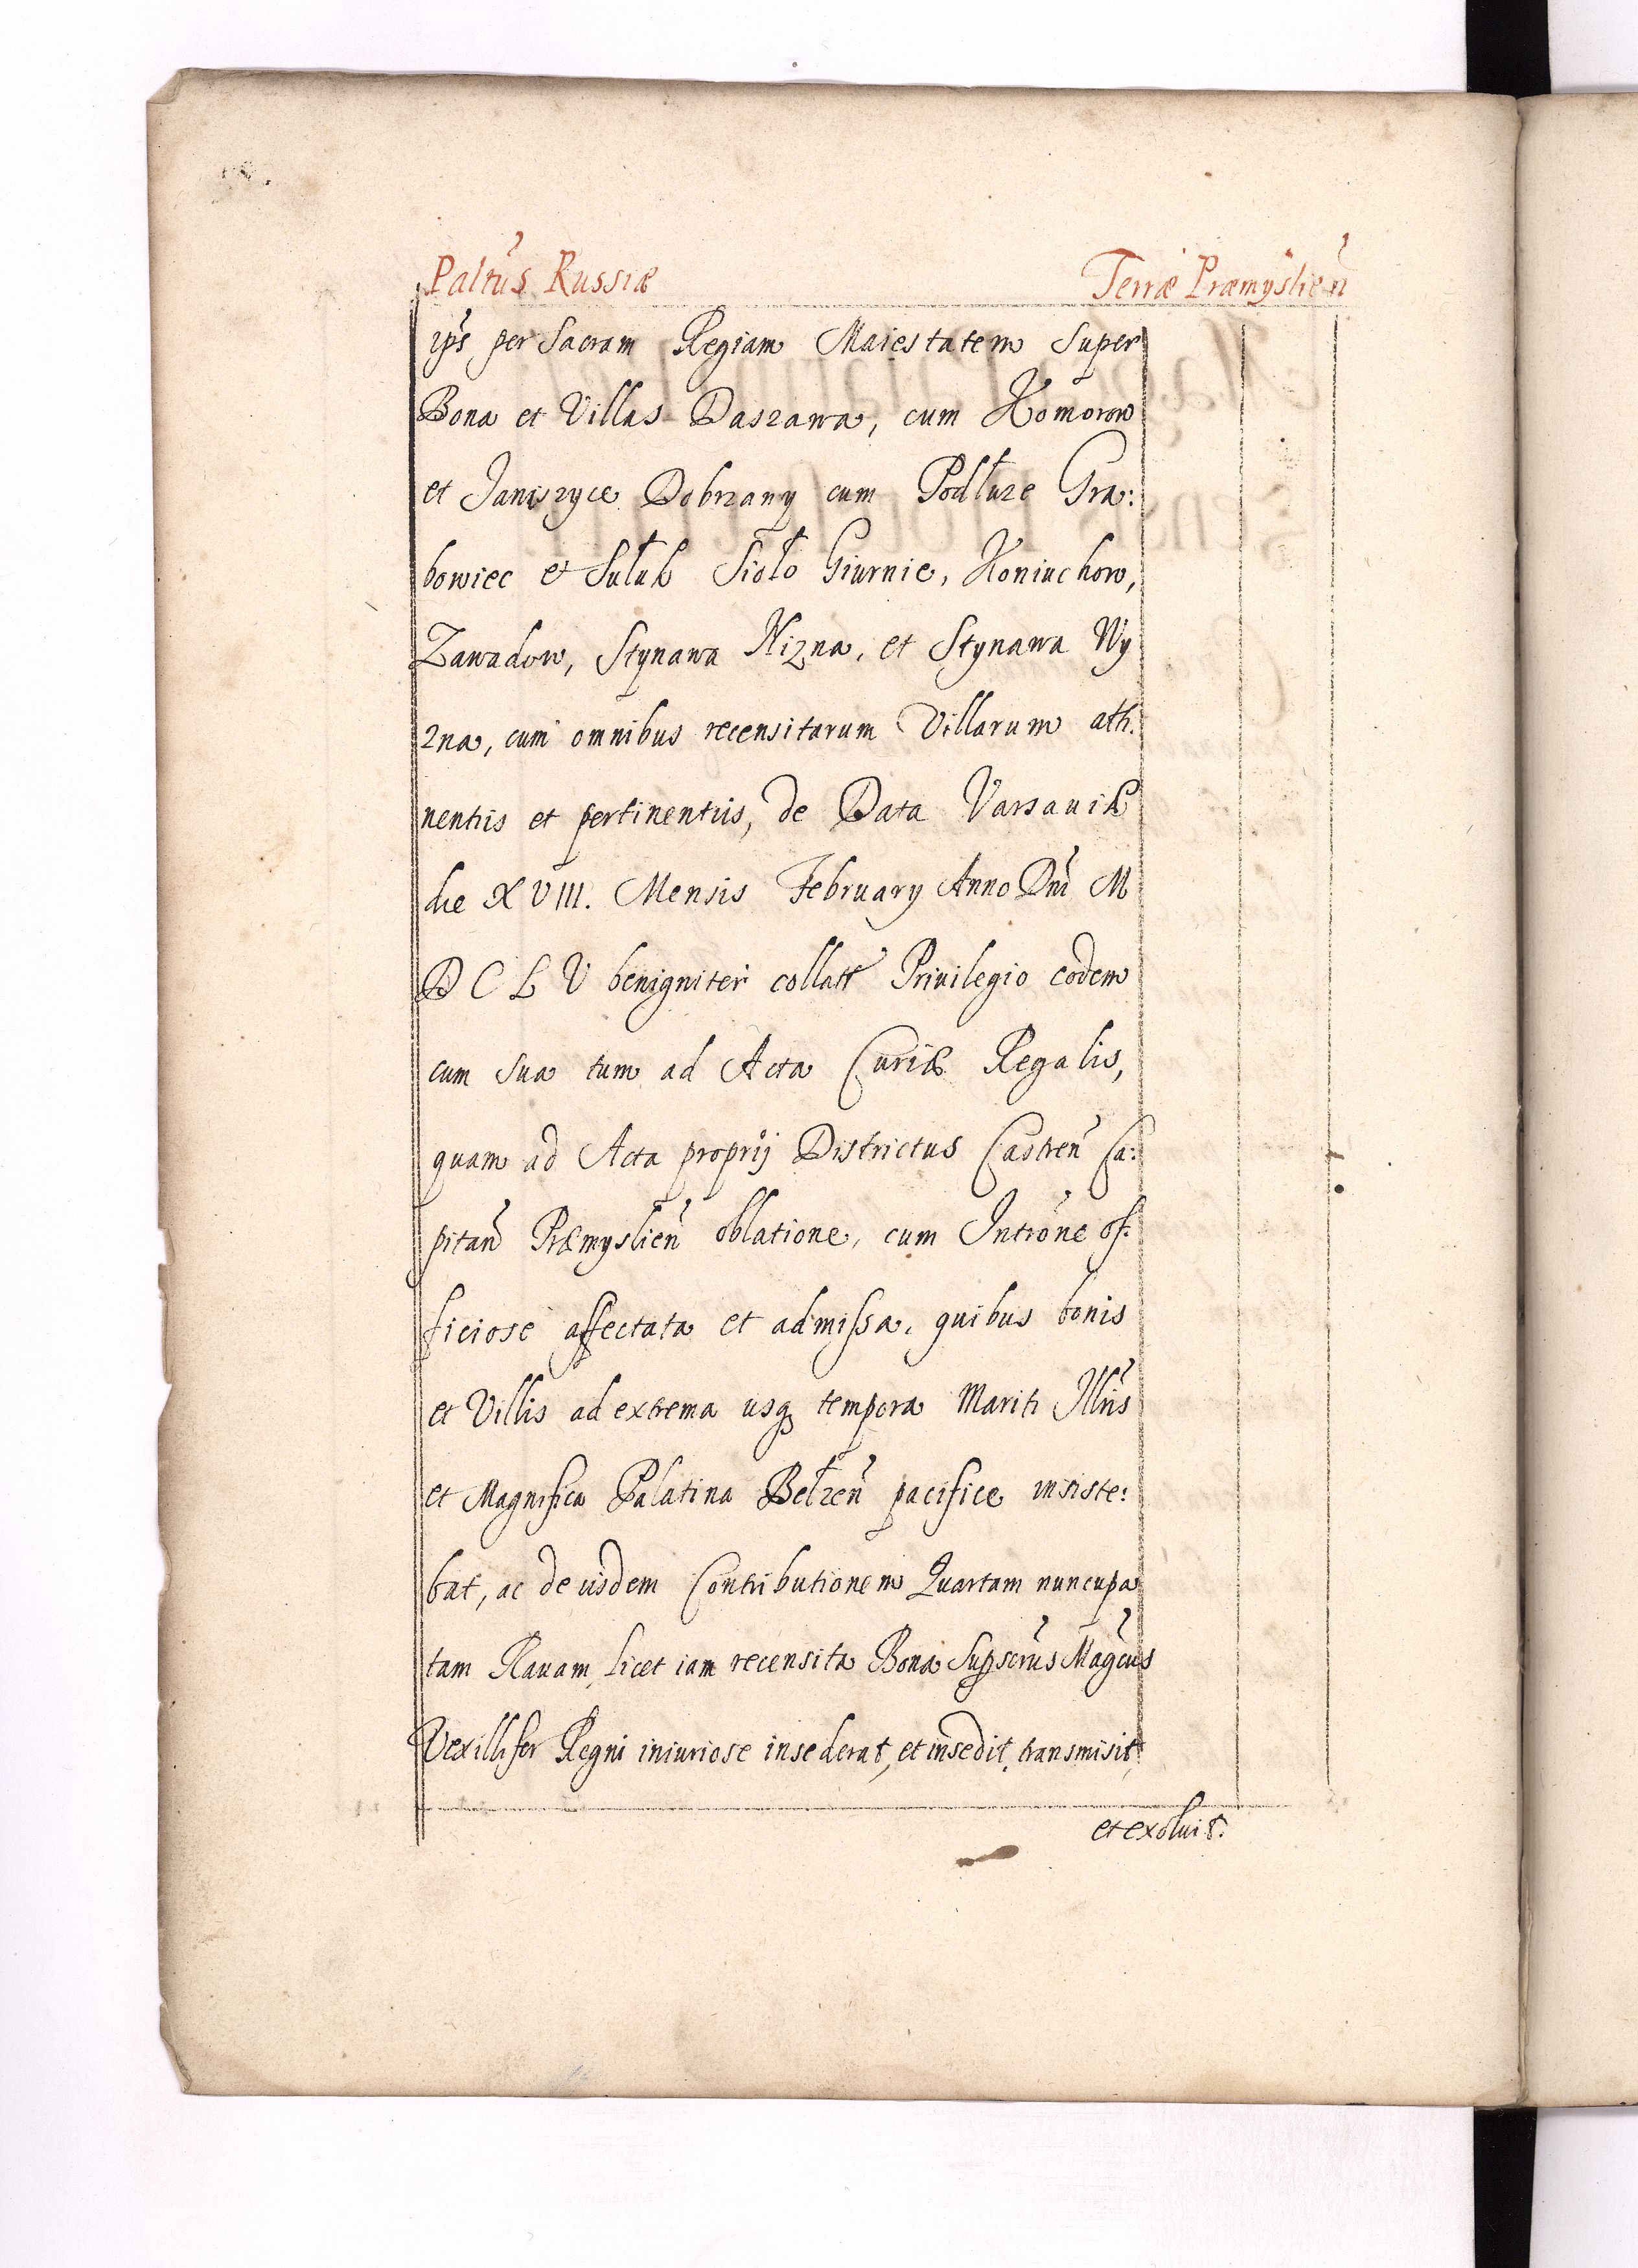 Paltũs Russiæ Terræ Præmyslień
ips̃ per Sacram Regiam Maiestatem Super
Bona et Villas Daszawa, cum Komorow
et Janiszyce Dobrzany cum Podłuze Gra:
bowiec et Sułuk Sioło Giurnie, Koniuchow,
Zawadow, Stynawa Nizna, et Stynawa Wy
zna, cum omnibus recensitarum Villarum atti:
nentiis et pertinentiis, de Data Varsauiæ
die XVIII. Mensis February Anno Dnĩ M
D C L V benigniter collatt Priuilegio eodem
cum sua tum ad Acta Curiæ Regalis,
quam ad Acta proprij Districtus Castreñ Ca:
pitañ Præmyslieñ oblatione, cum Introñe of:
ficiose affectata et admissa, quibus bonis
et Villis ad extrema usq; tempora Mariti Illrĩs
et Magnifica Palatina Bełzeñ pacifice insiste:
bat, ac de iisdem Contributionem Quartam nuncupa
tam Rauam, licet iam recensita Bona Supscrũs Magc̃us
Vexillifer Regni iniuriose insederat, et insedit, transmisit,
et exoluit.